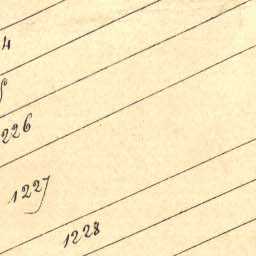 4
226
1227
1228